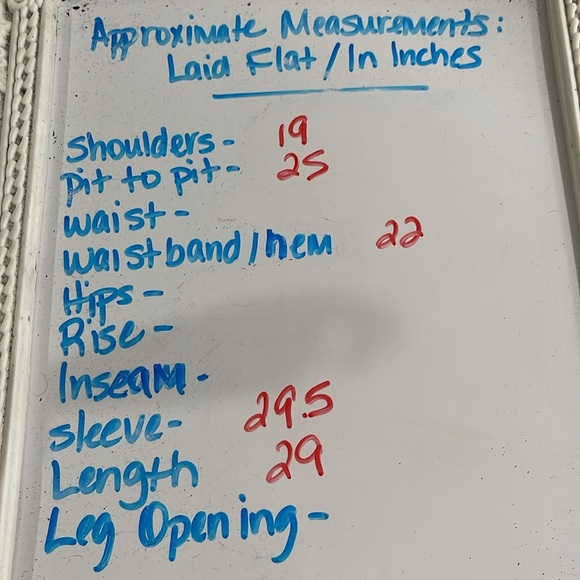 Approximate Measurements:
Laid Flat / In Inches
Shoulders - 19
pit to pit - 25
waist -
waistband/hem 22
Hips -
Rise -
Inseam -
sleeve - 29.5
Length 29
Leg Opening -